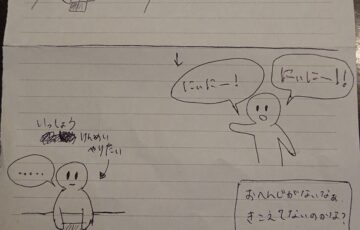 にいにー!
にいにー!!
いっしょう
けんめい
やりたい
.....
おへんじがないなぁ
きこえてないのかな?